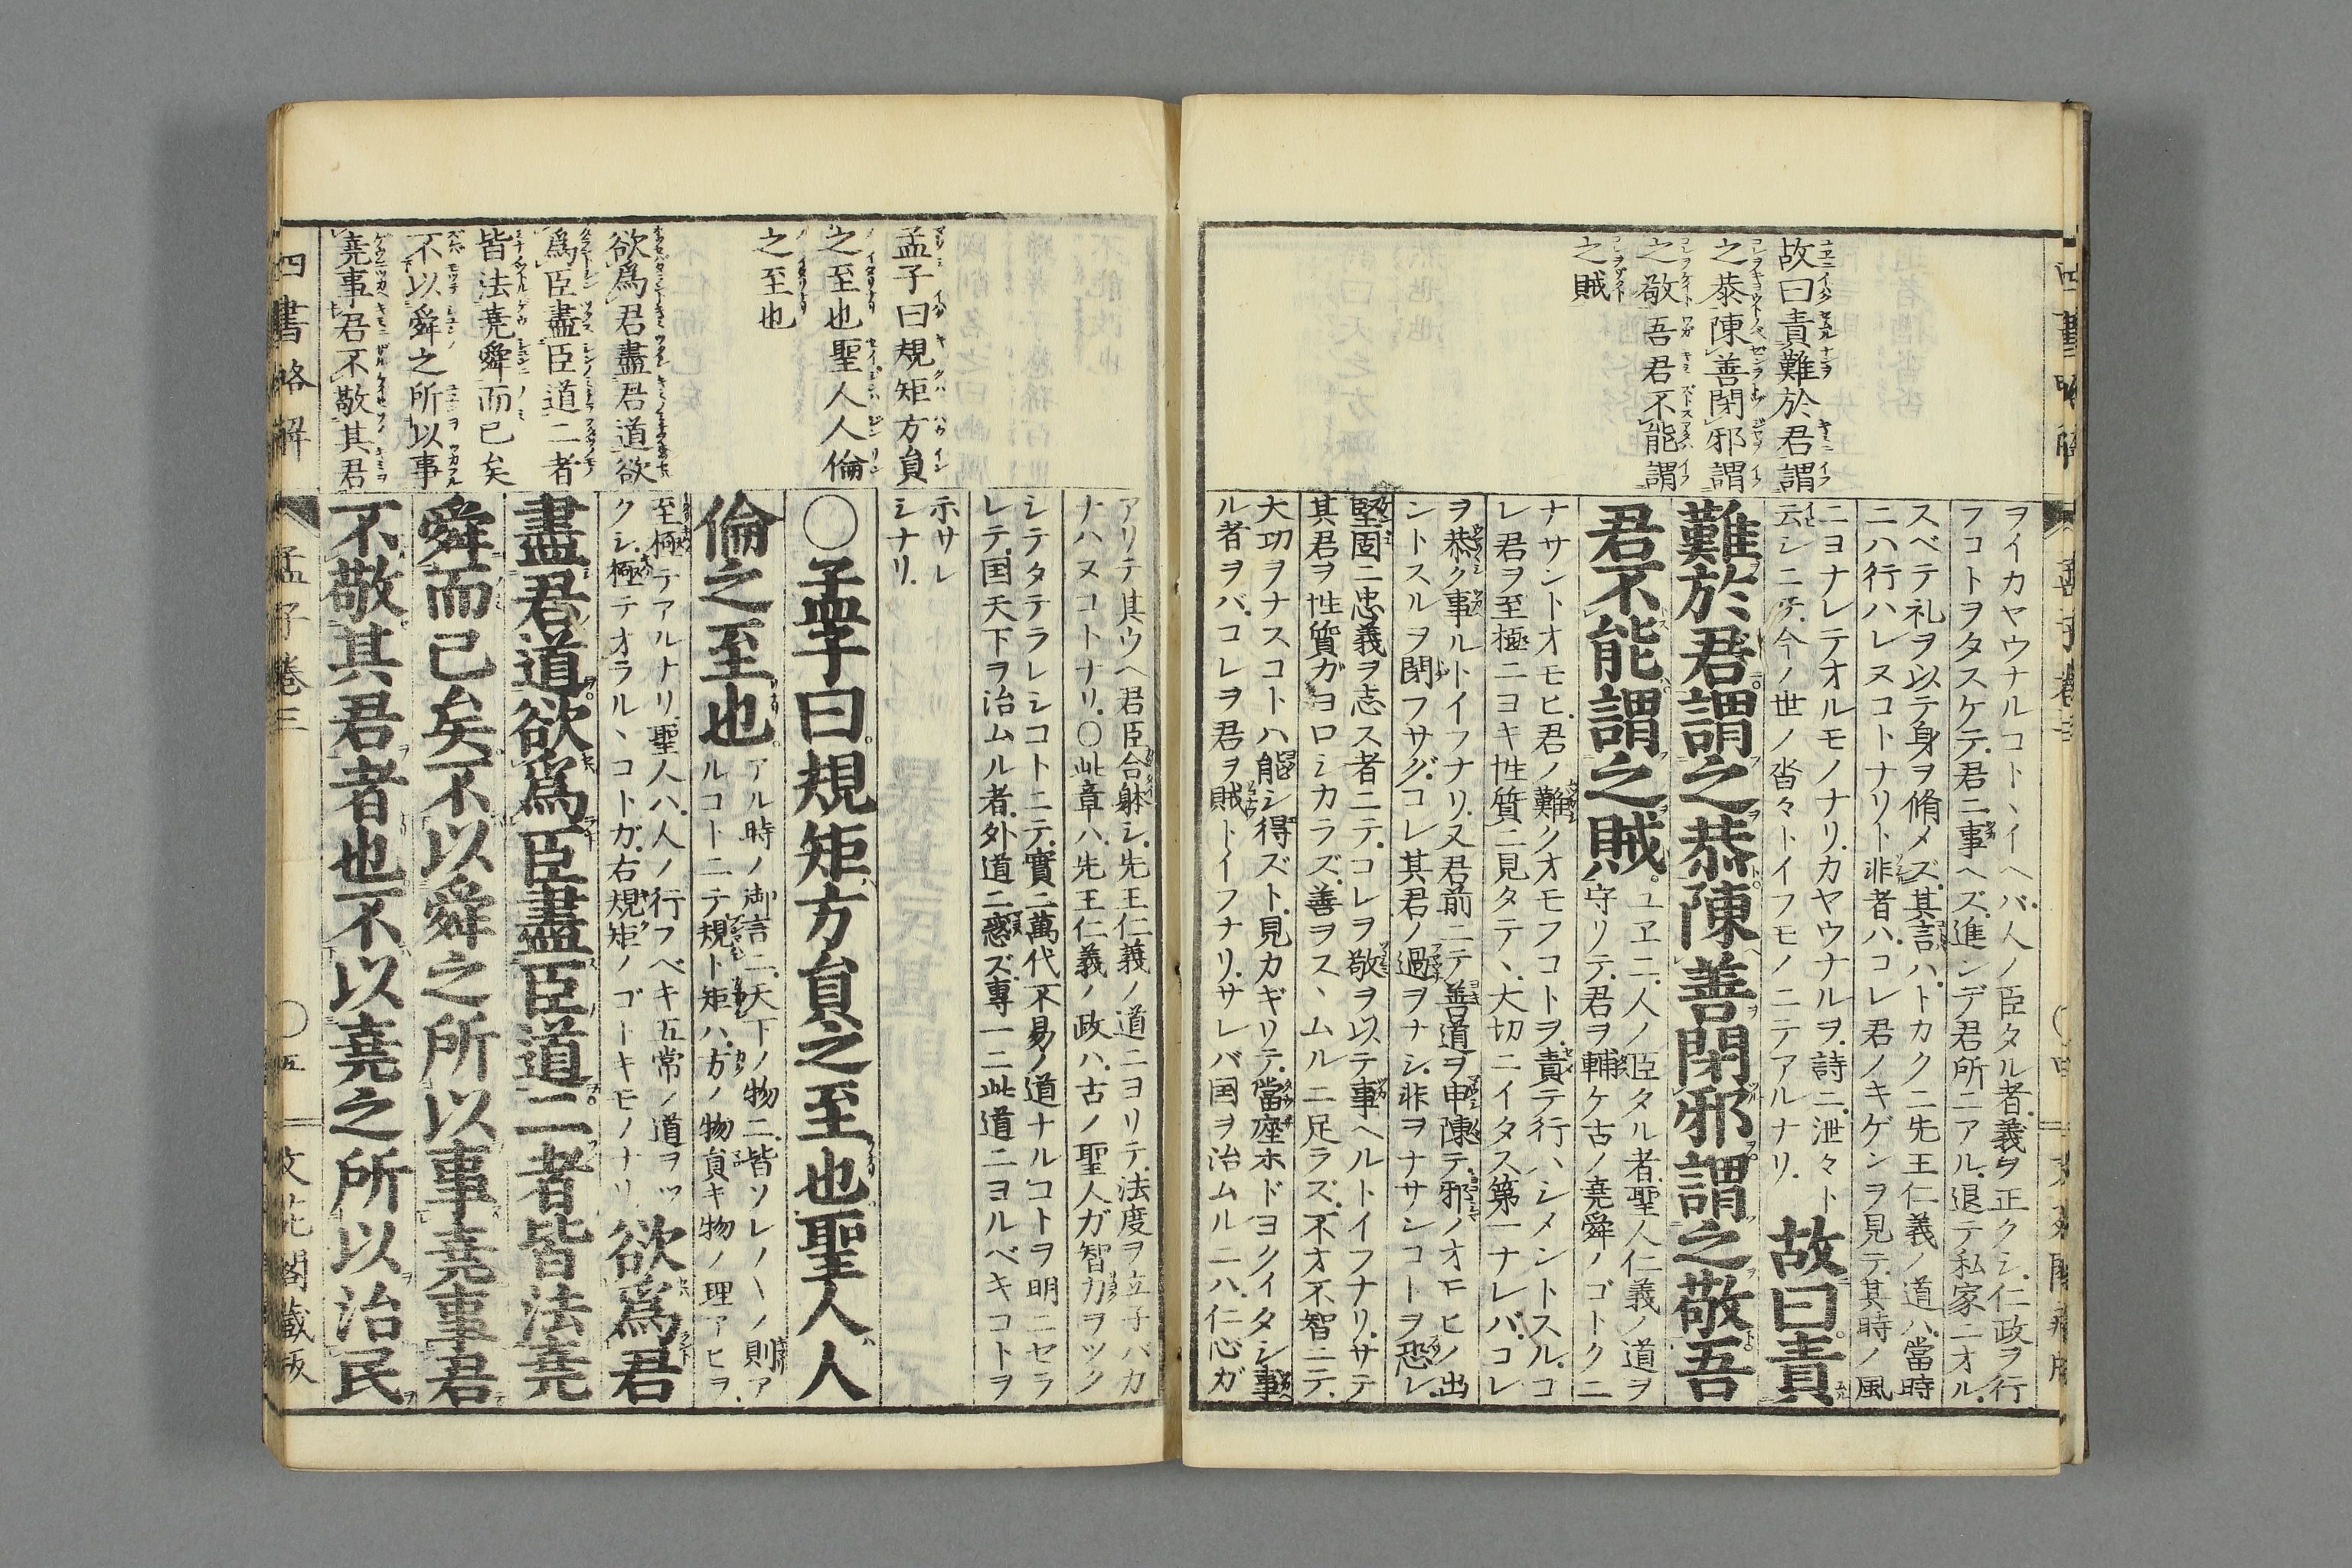 故曰責難於君謂
之恭陳善閉邪謂
之敬吾君不能謂
之賊
ヲイカヤウナルコトヽイヘバ人ノ臣タル者義ヲ正クシ仁政ヲ行
フコトヲタスケテ君ニ事ヘズ進ンデ君所ニアル退テ私家ニオル
スベテ礼ヲ以テ身ヲ脩メズ其言ハトカクニ先王仁義ノ道ハ當時
ニハ行ハレヌコトナリト非者ハコレ君ノキゲンヲ見テ其時ノ風
ニヨナレテオルモノナリカヤウナルヲ詩ニ泄々ト
云シニテ今ノ世ノ沓々トイフモノニテアルナリ
故曰責
難於君謂之恭陳善閉邪謂之敬吾
君不能謂之賊
ユヱニ人ノ臣タル者聖人仁義ノ道ヲ
守リテ君ヲ輔ケ古ノ堯舜ノゴトクニ
ナサントオモヒ君ノ難クオモフコトヲ責テ行ヽシメントスルコ
レ君ヲ至極ニヨキ性質ニ見タテヽ大切ニイタス第一ナレバコレ
ヲ恭ク事ルトイフナリ又君前ニテ善道ヲ申陳テ邪ノオモヒノ出
ントスルヲ閉フサグコレ其君ノ過ヲナシ非ヲナサンコトヲ恐レ
堅固ニ忠義ヲ志ス者ニテコレヲ敬ヲ以テ事ヘルトイフナリサテ
其君ヲ性質ガヨロシカラズ善ヲスヽムルニ足ラズ不才不智ニテ
大功ヲナスコトハ能シ得ズト見カギリテ當座ホドヨクイタシ事
ル者ヲバコレヲ君ヲ賊トイフナリサレバ国ヲ治ムルニハ仁心ガ
孟子曰規矩方負
之至也聖人人倫
之至也
欲爲君盡君道欲
爲臣盡臣道二者
皆法堯舜而已矣
不以舜之所以事
堯事君不敬其君
アリテ其ウヘ君臣合躰シ先王仁義ノ道ニヨリテ法度ヲ立子バカ
ナハヌコトナリ○此章ハ先王仁義ノ政ハ古ノ聖人ガ智力ヲツク
シテタテラレシコトニテ實ニ萬代不易ノ道ナルコトヲ明ニセラ
レテ国天下ヲ治ムル者外道ニ惑ズ專一ニ此道ニヨルベキコトヲ
示サレ
シナリ
○孟子曰規矩方負之至也聖人人
倫之至也
アル時ノ御言ニ天下ノ物ニ皆ソレ〳〵ノ則ア
ルコトニテ規ト矩ハ方ノ物負キ物ノ理アヒヲ
至極テアルナリ聖人ハ人ノ行フベキ五常ノ道ヲツ
クシ極テオラルヽコトガ右規矩ノゴトキモノナリ
欲爲君
盡君道欲爲臣盡臣道二者皆法堯
舜而已矣不以舜之所以事堯事君
不敬其君者也不以堯之所以治民
四書略解
孟子巻三
○五
文花閣藏板